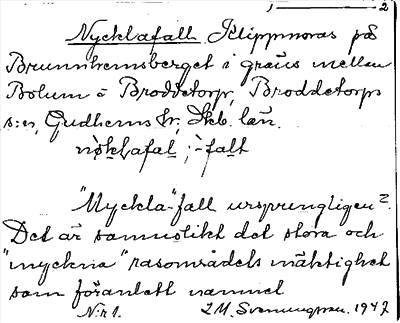 2
Nycklafall Klippnoras på
Brunnhemsberget i gräns mellan
Bolum o Broddetorp, Broddetorps
s:n, Gudhems hr, Skb. län.
"Myckla"-fall ursprungligen?
Det är sannolikt det stora och
"myckna" rasområdets mäktighet
som föranlett namnet
L.M. Svenungsson. 1947